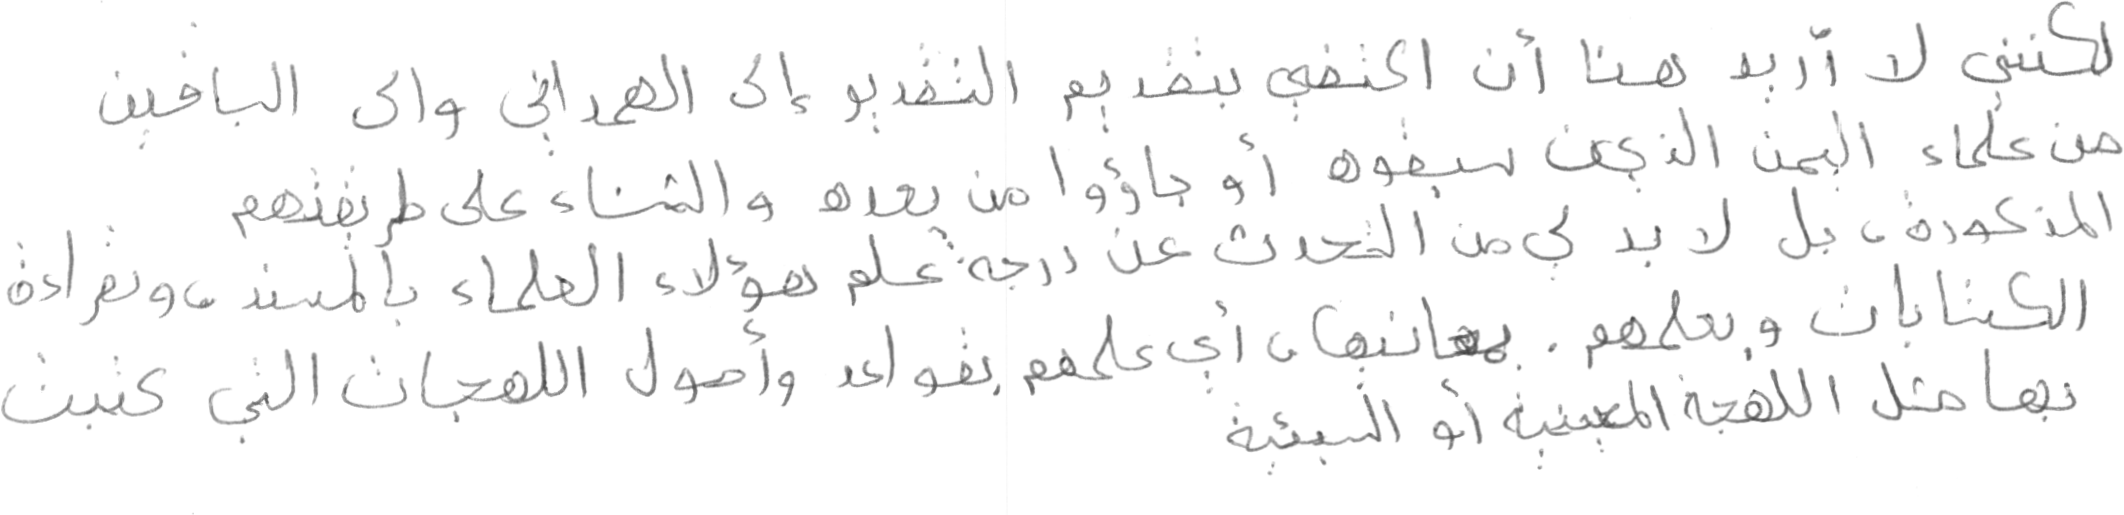 لكنني لا أريد هنا أن اكتفي بتقديم التقدير إلى الهمداني والى الباقين
من علماء اليمن الذين سبقوه أو جاؤوا من بعده والثناء على طريقتهم
المذكورة، بل لا بد لي من التحدث عن درجة علم هؤلاء العلماء بالمسند، وبقراءة
الكتابات وبعلمهم. بمعانيها، أي علمهم بقواعد وأصول اللهجات التي كتبت
بها مثل اللهجة المعينية أو السبئية